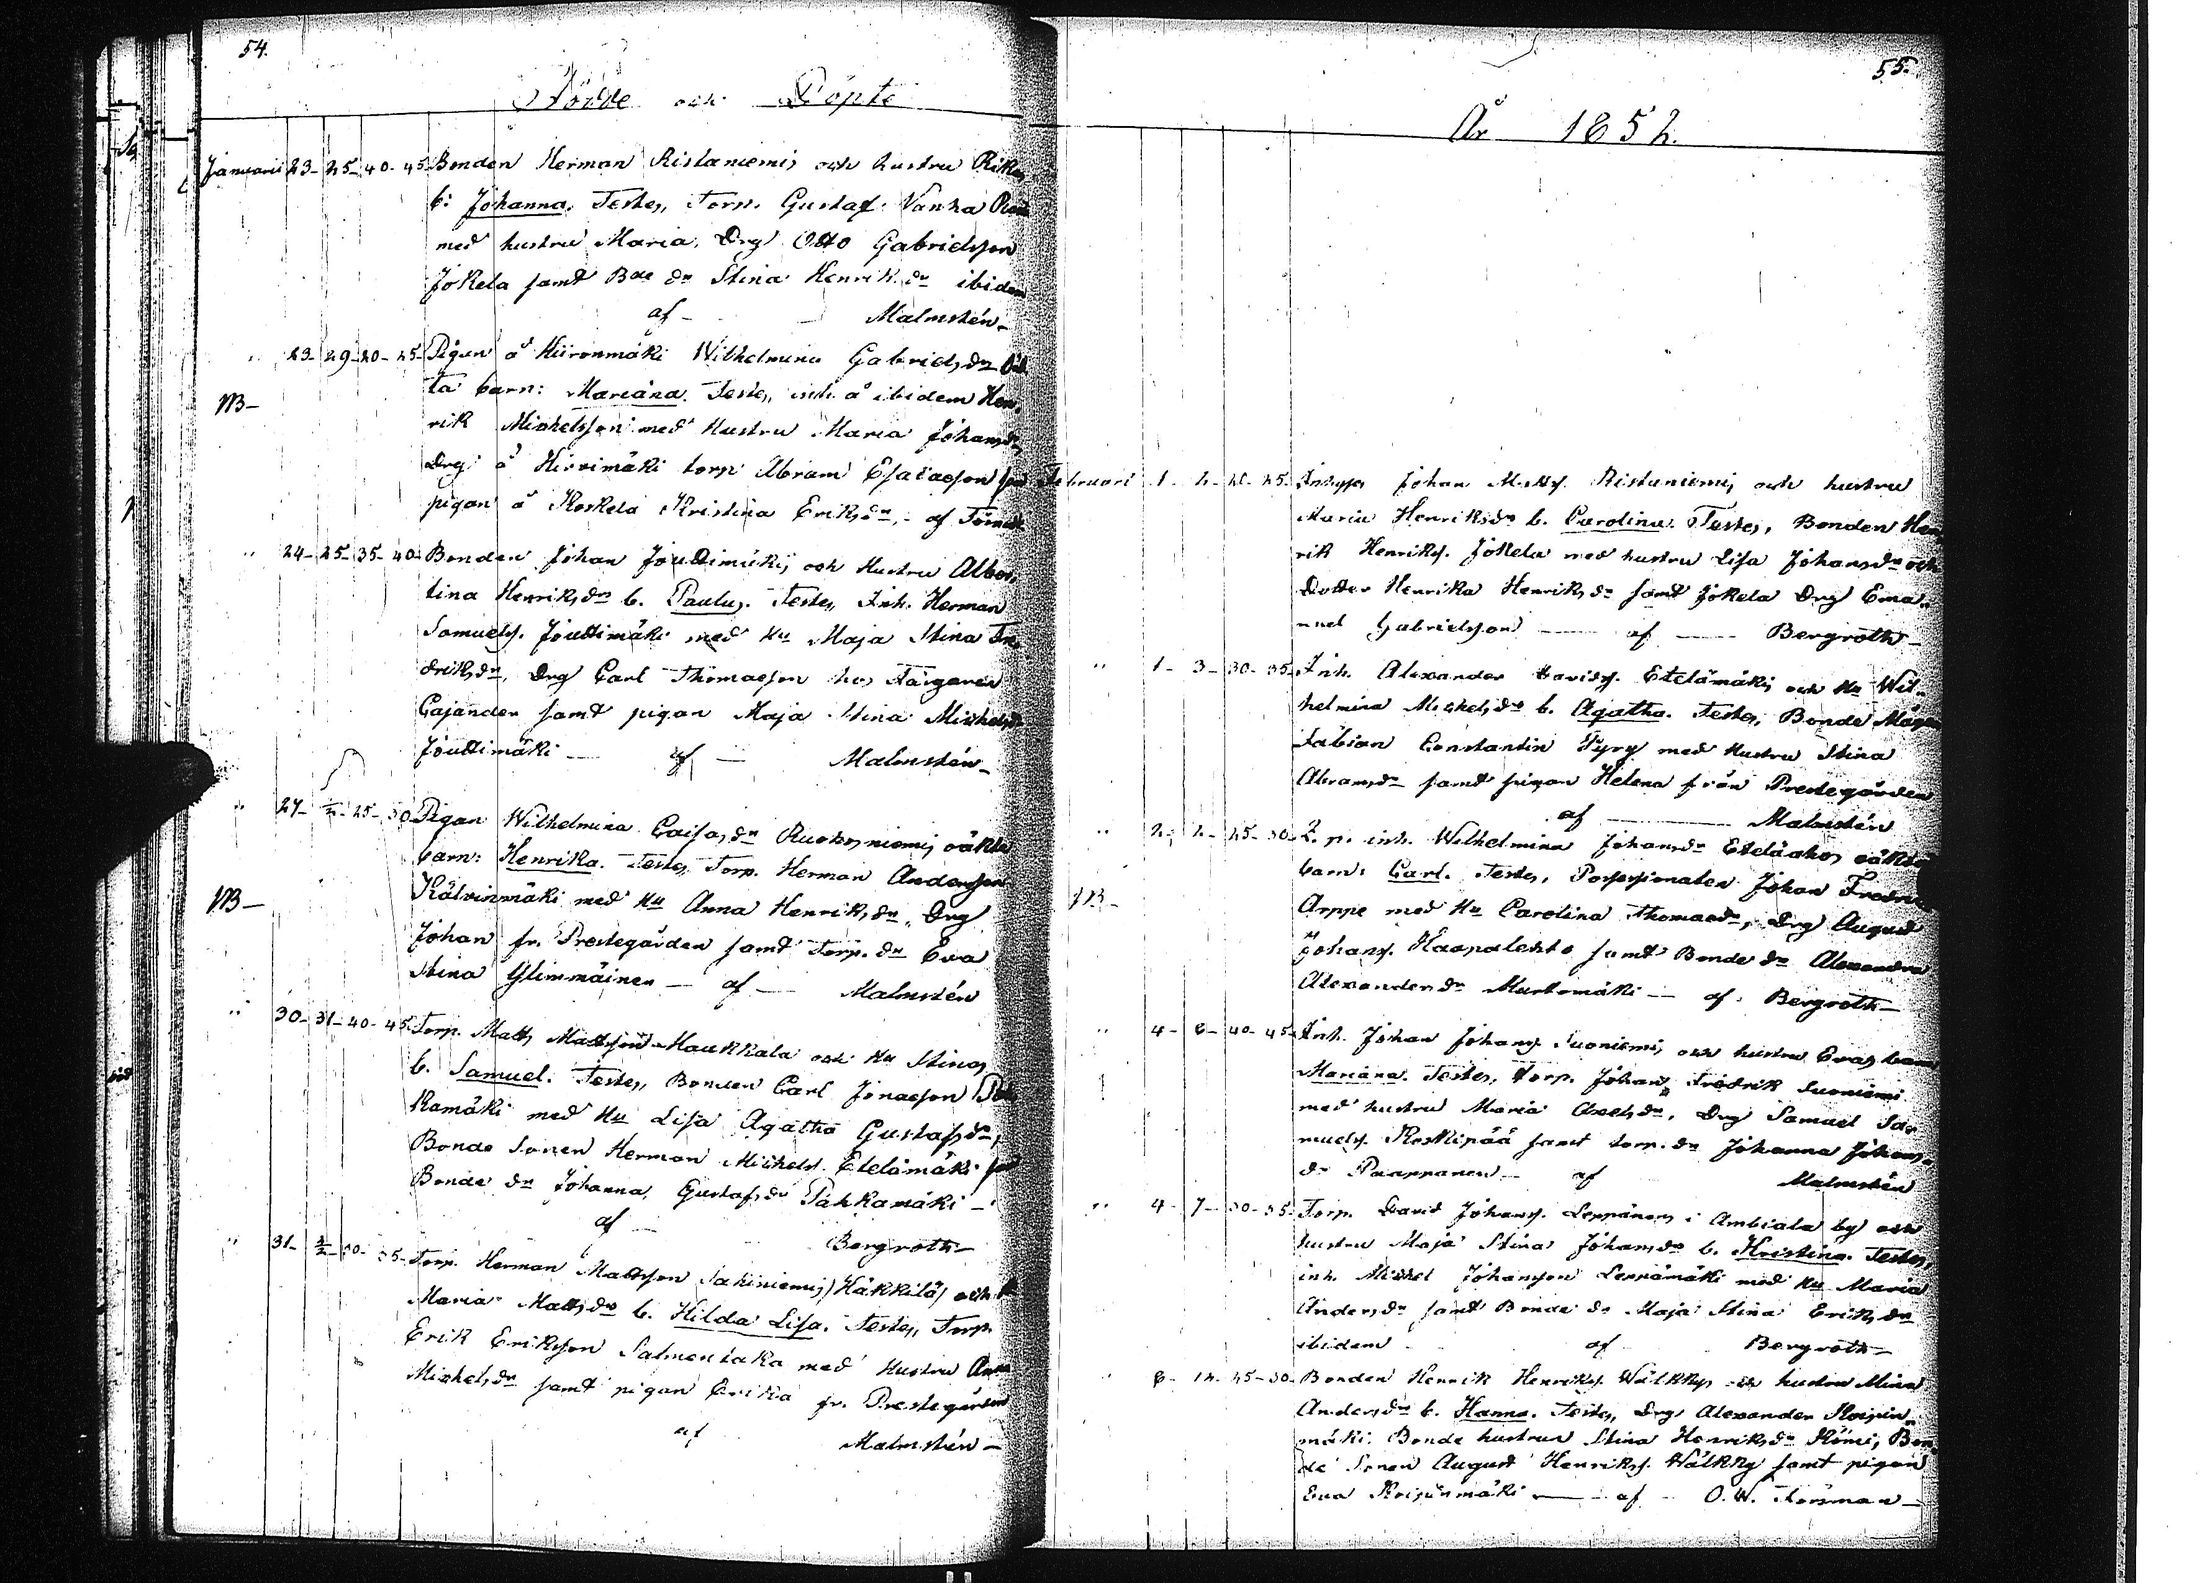 54.
Födde och Döpte
Januarii 23- 25- 40- 45 Bonden Herman Ristaniemis och hustru Rikas
b: Johanna. Testes, Torp. Gustaf Vanha
med hustru Maria, Drg Otto Gabrielsson
Jokela samt Bde dr Stina Henriksdr ibidem
af - Malmstén-
" 23- 29- 20- 25- Pigan å Hiironmäki Wilhelmina Gabrielsdr oäk
ta barn: Mariana. Testes, inh. å ibidem Hen-
NB-
rik Michelsson med Hustru Maria Johansdr,
Drg. å Hirvimäki torp Abram Esaiasson
pigan å Koskela Kristina Eriksdr,- af
" 24- 25- 35- 40- Bonden Johan Jouttimäkis och Hustru Alber-
tina Henriksdrs b. Paulus. Testes, Inh. Herman
Samuels. Jouttimäki med Hu Maja Stina Fre-
driksdr, Drg Carl Thomasson hos Färgaren
Cajander samt pigan Maja Stina Michelsdr
Jouttimäki - af - Malmstén-
" 27- ½- 25- 30 Pigan Wilhelmina Caisasdr Ruokosniemis oäkta
barn: Henrika. Testes, Torp. Herman Andersson
NB-
Kälvinmäki med Hu Anna Henriksdr, Drg
Johan fr. Prestegården samt Torp. dr Eva
Stina Glimmäinen - af - Malmstén
" 30- 31- 40- 45 Torp. Matts Mattsson Haukkala och Hu Stinas
b. Samuel. Testes, Bonden Carl Jonasson
kamäki med Hu Lisa Agatha Gustafsdr,
Bonde Sonen Herman Michels. Etelämäki
Bonde dr Johanna Gustafsdr Pahkamäki -
af - Bergroth-
" 31- ½- 30- 35- Torp. Herman Mattsson Sahiniemis (Häkkilä) och
Maria Mattsdrs b. Hilda Lisa. Testes, Torp.
Erik Eriksson Salmentaka med Hustru Anna
Michelsdr samt pigan Erika fr. Prestegården
af Malmstén-
55.
År 1852.
Februari 1- 2- 20- 25 Johan Matts. Ristaniemis och hustru
Maria Henriksdrs b. Carolina. Testes, Bonden Hen
rik Henriks. Jokela med hustru Lisa Johansdr och
Dotter Henrika Henriksdr samt Jokela Drg Ema-
nuel Gabrielsson - af - Bergroth-
" 1- 3- 30- 35 Inh. Alexander Davids. Etelämäkis och Hu Wil-
helmina Michelsdrs b. Agatha. Testes, Bonde Mågen
Fabian Constantin Pyry med Hustru Stina
Abramsdr samt pigan Helena från Prestegården
af - Malmstén
" 2- 2- 25- 30 Q. p. inh. Wilhelmina Johansdr Eteläahos oäkta
barn: Carl. Testes, Possessionaten Johan Fredrik
NB-
Arppe med Hu Carolina Thomasdr, Drg August
Johans. Haapalehto samt Bonde dr Alexandra
Alexandersdr Murtomäki - af Bergroth-
" 4- 6- 40- 45 Inh. Johan Johans. Suoniemis och hustru Evas barn
Mariana. Testes, Torp. Johan Fredrik Suoniemi
med hustru Maria Axelsdr, Drg Samuel Sa-
muels. Koskipää samt torp. dr Johanna Johans-
dr Paappanen - af Malmstén
" 4- 7- 30- 35- Torp. David Johans. Leppänens i Ambiala by och
hustru Maja Stina Johansdrs b. Kristina. Testes,
inh. Michel Johansson Leppämäki med Hu Maria
Andersdr samt Bonde dr Maja Stina Eriksdr
ibidem af Bergroth-
" 6- 12- 25- 30- Bonden Henrik Henriks. Wälkkys och hustru Mina
Andersdrs b. Hanna. Testes, Drg Alexander Koipin-
mäki, Bonde hustrun Stina Henriksdr Römi, Bon-
de Sonen August Henriks. Wälkky samt pigan
Eva Koipinmäki - af - O. W. Forsman-